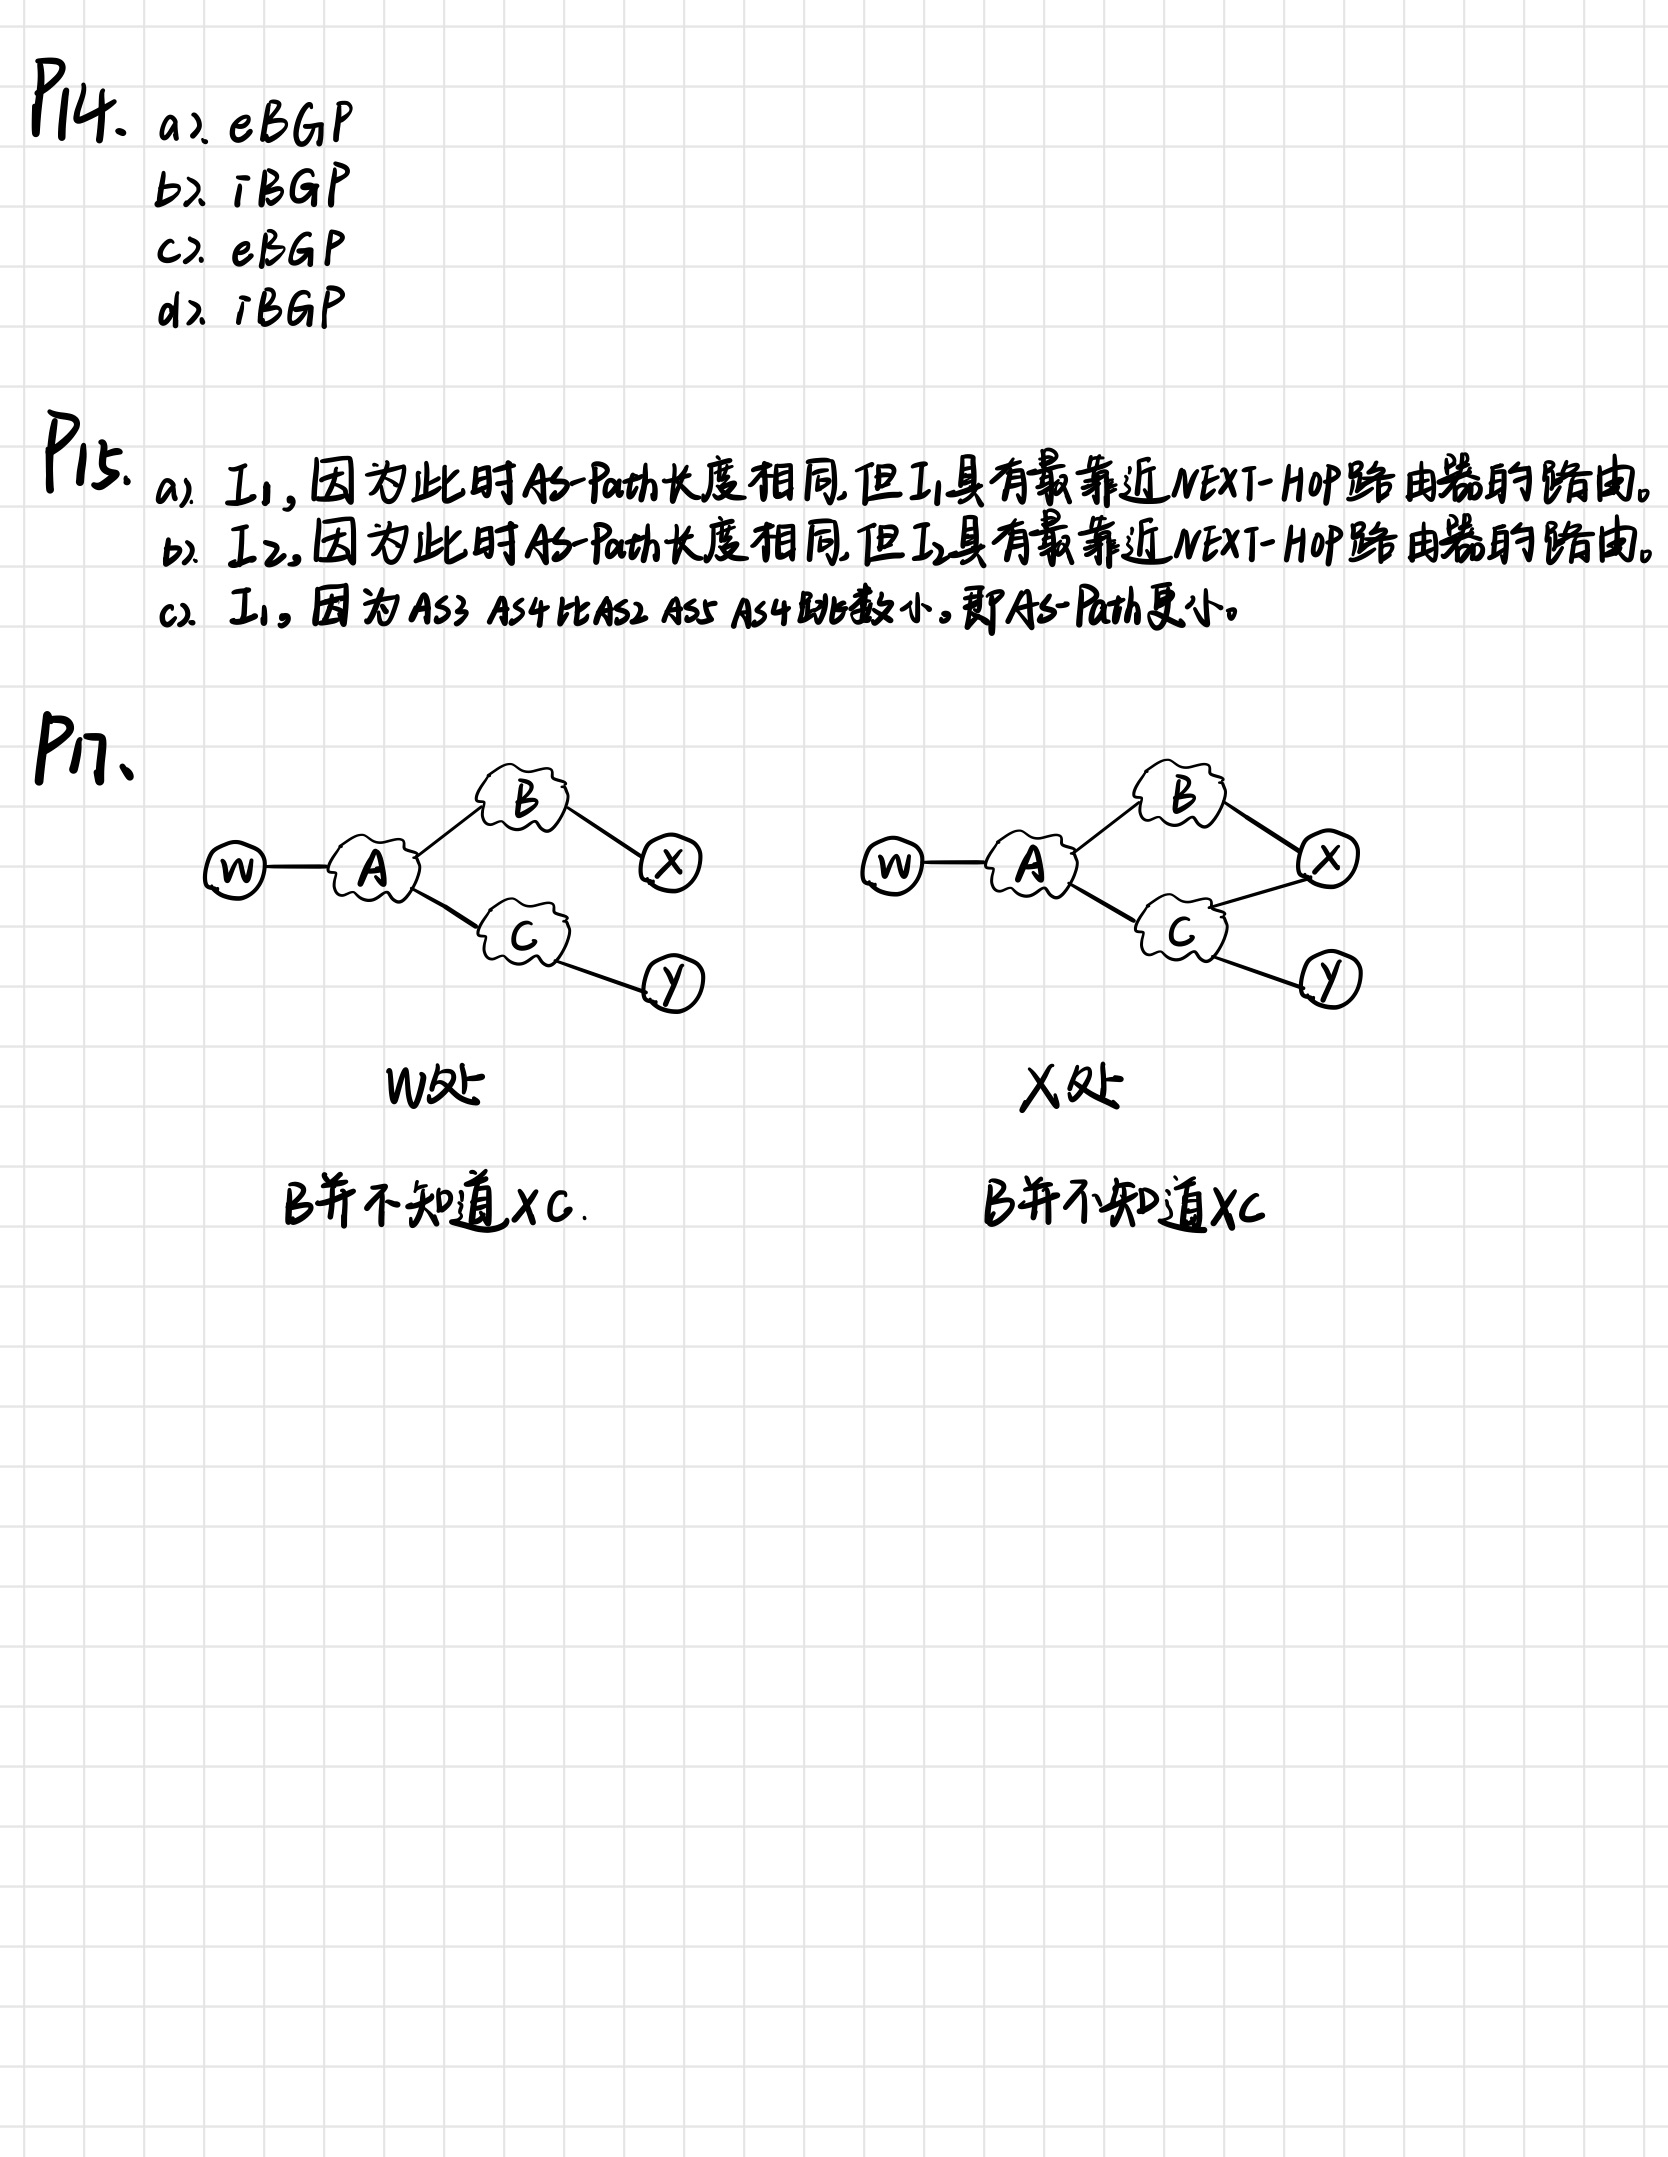 P14.
a). eBGP
b). iBGP
c). eBGP
d). iBGP
P15.
a). I1,因为此时AS-Path长度相同,但I1具有最靠近NEXT-HOP路由器的路由。
b). I2,因为此时AS-Path长度相同,但I2具有最靠近NEXT-HOP路由器的路由。
c). I1,因为AS3 AS4比AS2 AS5 AS4跳数小。即AS-Path更小。
P17、
B
W
A
X
C
Y
B
W
A
X
C
Y
W处
X处
B并不知道XC.
B并不知道XC